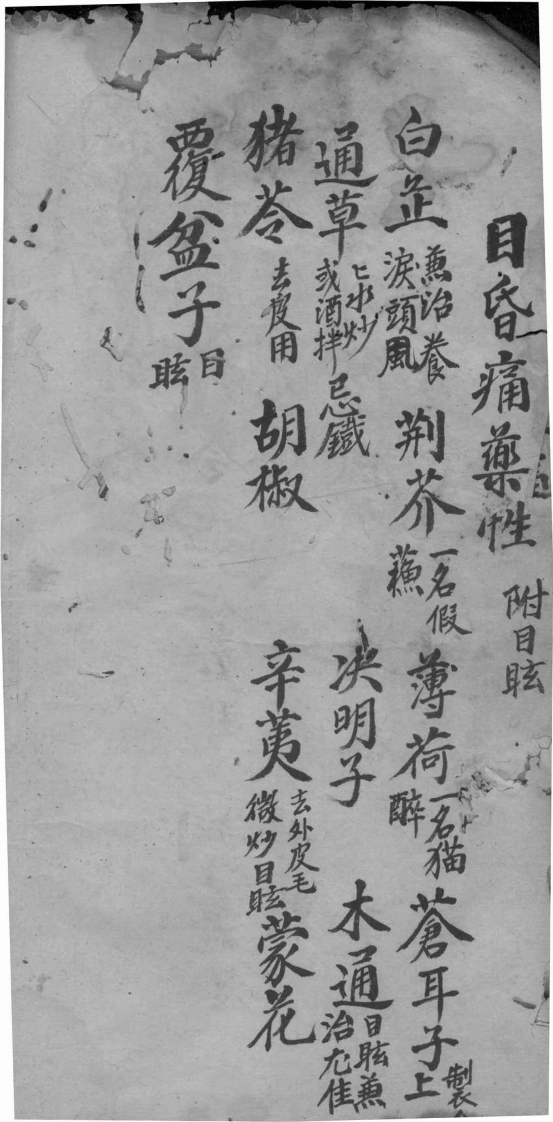 目昏痛藥性 附目眩
白芷 兼治養淚頭風 荆芥 一名假蘇 薄荷 一名猫醉 蒼耳子 製衣上
通草 匕水炒或酒拌忌鐵 决明子 木通 目眩兼治尤佳
猪苓 去皮用 胡椒 辛荑 去外皮毛微炒目眩 蒙花
覆盆子 目眩